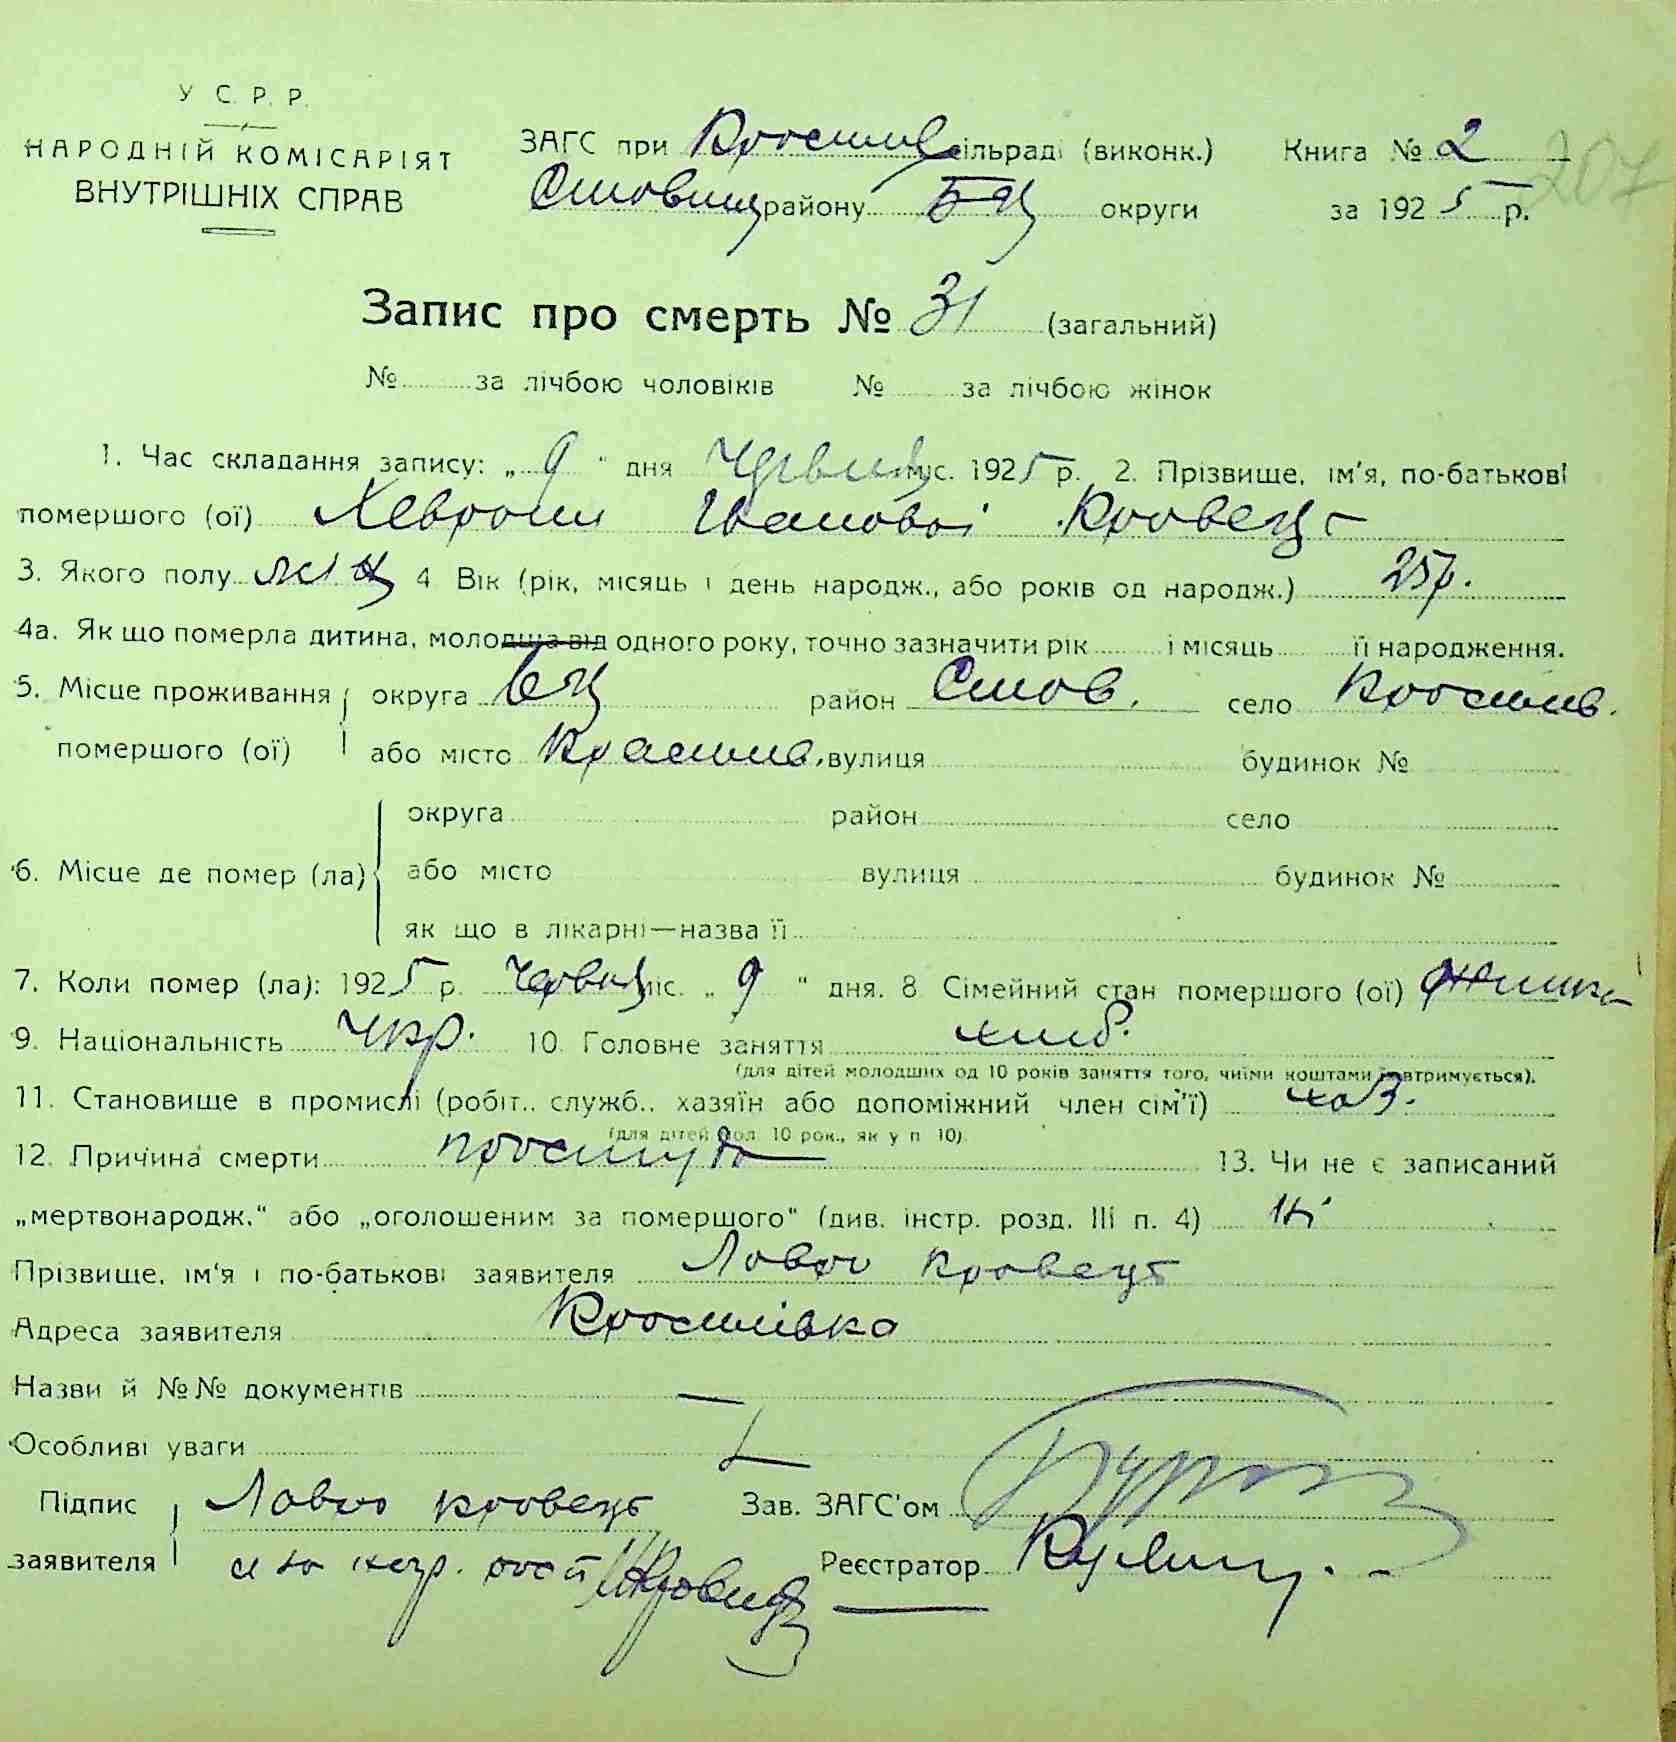 У С. Р. Р.
НАРОДНІЙ КОМІСАРІЯТ
ВНУТРІШНІХ СПРАВ
ЗАГС при Красилів сільраді (виконк.) Книга № 2
Ставищ району БЦ округи за 1925 р.
207
Запис про смерть № 31 (загальний)
№ за лічбою чоловіків № за лічбою жінок
1. Час складання запису: „ 9 " дня Червця міс. 1925 р. 2. Прізвище, ім'я, по-батькові
помершого (ої) Хеврони Іванової Кравець
3. Якого полу жіц 4 Вік (рік, місяць і день народж., або років од народж.) 25р.
4а. Як що померла дитина, молодша від одного року, точно зазначити рік і місяць її народження.
5. Місце проживання округа БЦ район Став. село Красилів.
помершого (ої) або місто Красилів. вулиця будинок №
округа район село
6. Місце де помер (ла) або місто вулиця будинок №
як що в лікарні—назва її
7. Коли помер (ла): 1925 р. Червця міс. „ 9 " дня. 8 Сімейний стан помершого (ої)
9. Національність Укр. 10. Головне заняття хліб.
(для дітей молодших од 10 років заняття того, чиїми коштами їх втримується).
11. Становище в промислі (робіт., служб., хазяїн або допоміжний член сім'ї) хаз.
(для дітей мол. 10 рок., як у п 10).
12. Причина смерти простуда 13. Чи не є записаний
„мертвонародж." або „оголошеним за помершого" (див. інстр. розд. III п. 4) Ні
Прізвище, ім'я і по-батькові заявителя Лавро Кравець
Адреса заявителя Красилівка
Назви й №№ документів —
Особливі уваги —
Підпис Лавро Кравець Зав. ЗАГС'ом
заявителя Реєстратор